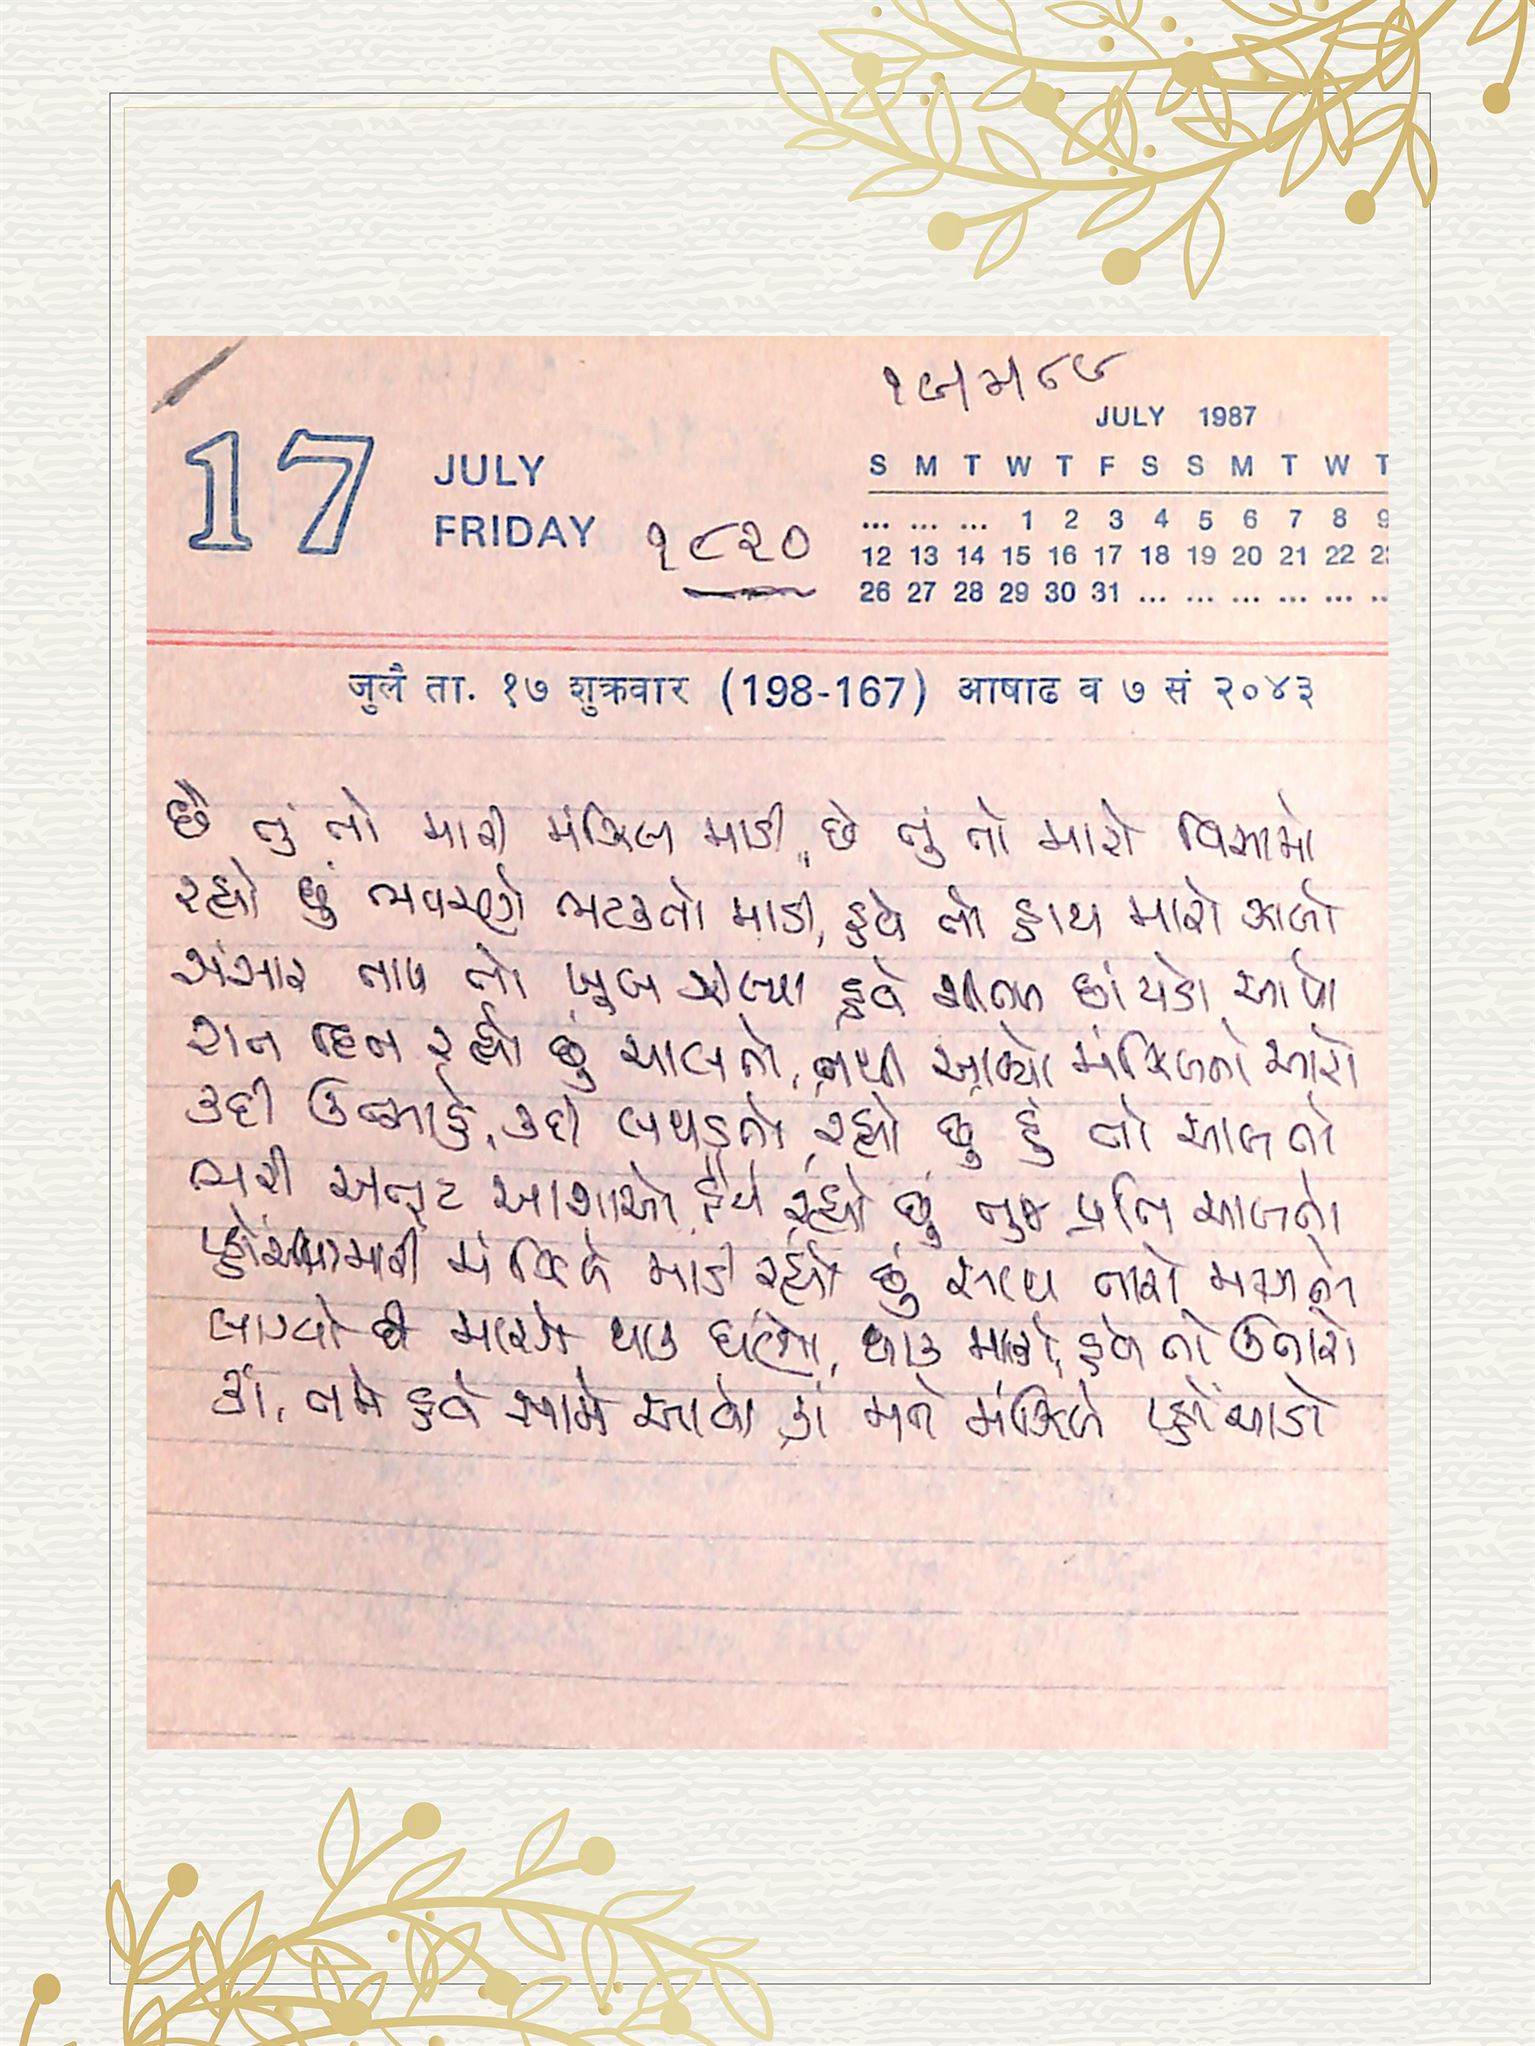 ૧૭/૫/૮૯
JULY 1987
17 JULY
FRIDAY ૧૮૨૦
S M T W T F S S M T W T
... ... ... 1 2 3 4 5 6 7 8 9
12 13 14 15 16 17 18 19 20 21 22 23
26 27 28 29 30 31 ... ... ... ... ... ...
जुलै ता. १७ शुक्रवार (198-167) आषाढ व ७ सं २०४३
છે તું તો મારી મંઝિલ માડી, છે તું તો મારો વિસામો
રહ્યો છું ભવરણે ભટકતો માડી, હવે તો હાથ મારો ઝાલો
સંસાર તાપ તો ખૂબ ઝીલ્યા હવે શીતળ છાંયડો આપો
રાત દિન રહ્યો છું ચાલતો, નથી આવ્યો મંઝિલનો આરો
કદી ઉન્માદે, કદી લથડતો, રહ્યો છું હું તો ચાલતો
ભરી અતૂટ આશાઓ હૈયે રહ્યો છું તુજ પ્રતિ ચાલતો
પ્હોંચવા મારી મંઝિલે માડી રહ્યો છું સાથ તારો માગતો
લાગ્યો છે મારગે થાક ઘણો, થાક મારો, હવે તો ઉતારો
કાં, તમે હવે સામે આવો, કાં મને મંઝિલે પ્હોંચાડો